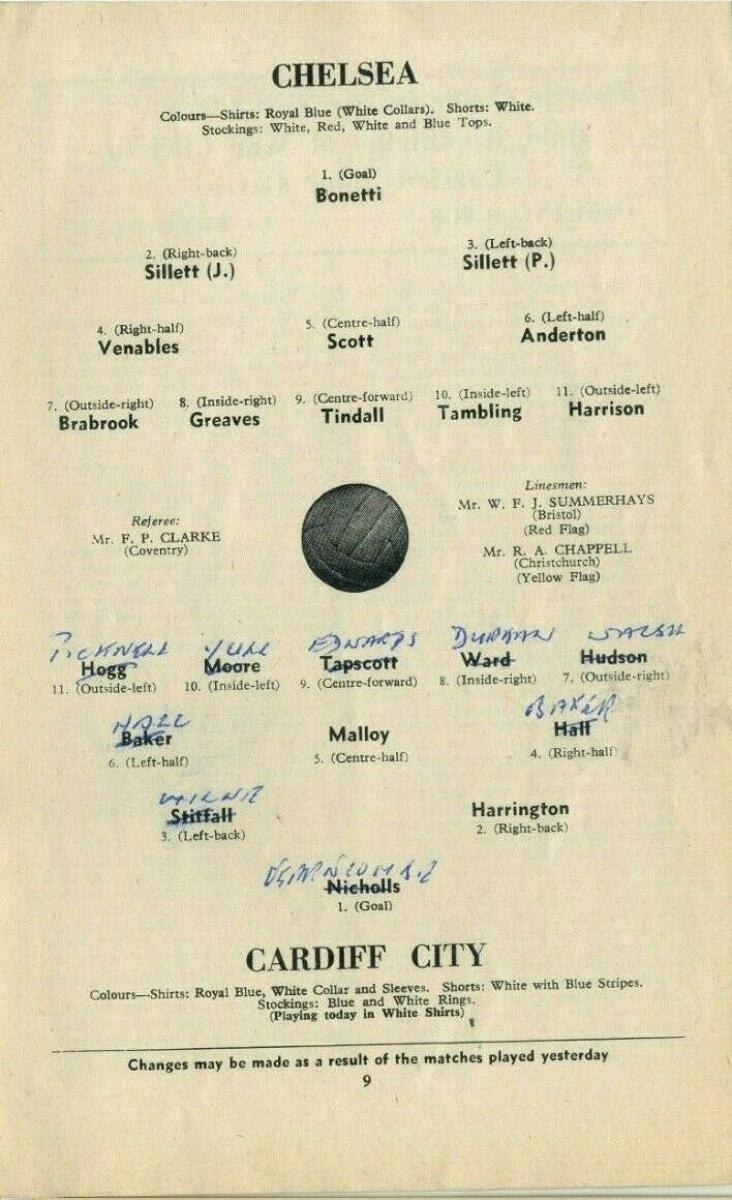 CHELSEA
Colours—Shirts: Royal Blue (White Collars). Shorts: White.
Stockings: White, Red, White and Blue Tops.
1. (Goal)
Bonetti
2. (Right-back) 3. (Left-back)
Sillett (J.) Sillett (P.)
4. (Right-half) 5. (Centre-half) 6. (Left-half)
Venables Scott Anderton
7. (Outside-right) 8. (Inside-right) 9. (Centre-forward) 10. (Inside-left) 11. (Outside-left)
Brabrook Greaves Tindall Tambling Harrison
Referee:
Mr. F. P. CLARKE
(Coventry)
Linesmen:
Mr. W. F. J. SUMMERHAYS
(Bristol)
(Red Flag)
Mr. R. A. CHAPPELL
(Christchurch)
(Yellow Flag)
EDWARDS DURBAN WALSH
Hogg Moore Tapscott Ward Hudson
11. (Outside-left) 10. (Inside-left) 9. (Centre-forward) 8. (Inside-right) 7. (Outside-right)
BAKER
Baker Malloy Hall
6. (Left-half) 5. (Centre-half) 4. (Right-half)
Stitfall Harrington
3. (Left-back) 2. (Right-back)
Nicholls
1. (Goal)
CARDIFF CITY
Colours—Shirts: Royal Blue, White Collar and Sleeves. Shorts: White with Blue Stripes.
Stockings: Blue and White Rings.
(Playing today in White Shirts)
Changes may be made as a result of the matches played yesterday
9